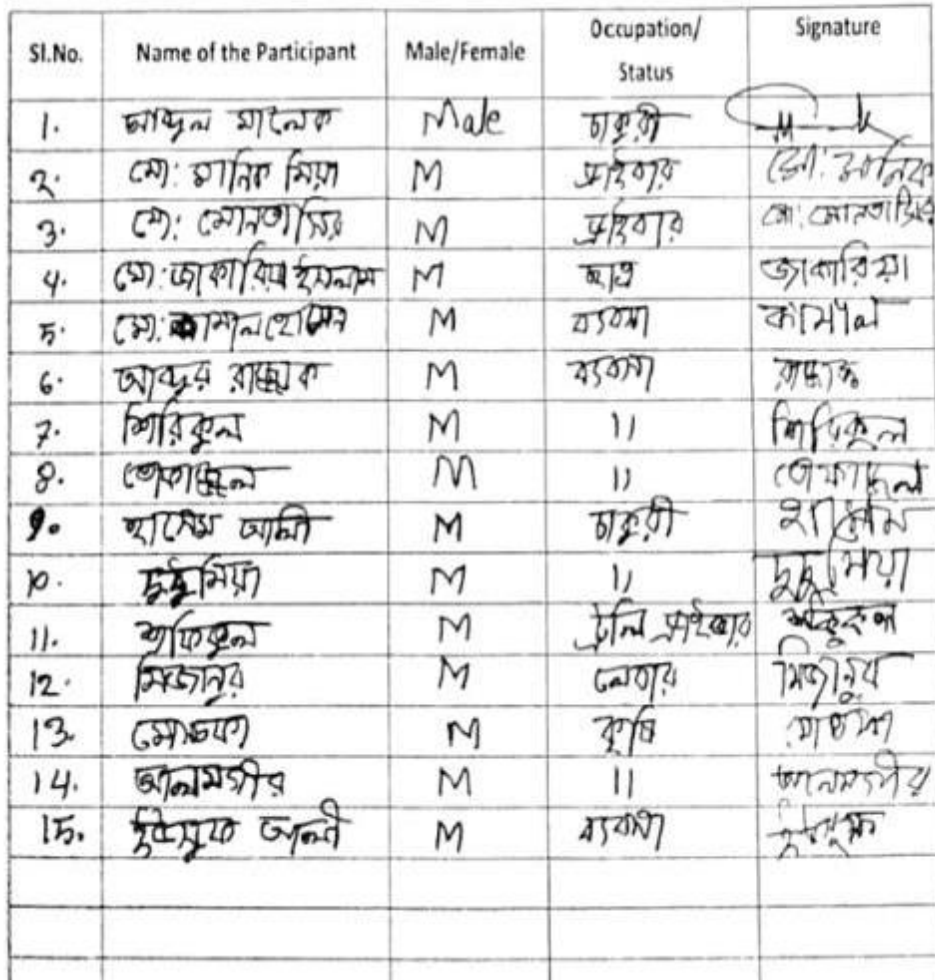 Sl.No. Name of the Participant Male/Female Occupation/ Status Signature
1. আব্দুল মালেক Male চাকুরী
2. মো: মানিক মিয়া M ড্রাইবার মো: মানিক
3. মো: মোনতাসির M ড্রাইবার মো: মোনতাসির
4. মো: জাকারিয়া ইসলাম M ছাত্র জাকারিয়া
5. মো: কামাল হোসেন M ব্যবসা কামাল
6. আব্দুর রাজ্জাক M ব্যবসা রাজ্জাক
7. শিরিকুল M 11 শিরিকুল
8. তোফাজ্জেল M 11 তোফাজ্জেল
9. হাসেম আলী M চাকুরী হাসেম
10. দুদু মিয়া M 11 দুদু মিয়া
11. শফিকুল M ট্রলি ড্রাইবার
12. মিজানুর M লেবার মিজানুর
13. মোস্তফা M কৃষি
14. আলমগীর M 11 আলমগীর
15. ইউসুফ আলী M ব্যবসা ইউসুফ